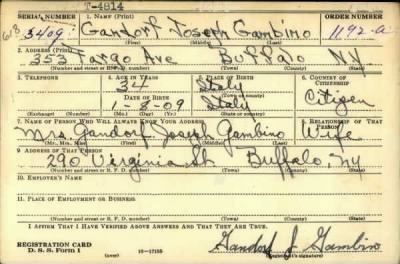 T-4814
SERIAL NUMBER 1. NAME (Print) ORDER NUMBER
618 3409 Gandorf Joseph Gambino 1192-a
(First) (Middle) (Last)
2. ADDRESS (Print)
353 Fargo Ave Buffalo NY
(Number and street or R. F. D. number) (Town) (County) (State)
3. TELEPHONE 4. AGE IN YEARS 5. PLACE OF BIRTH 6. COUNTRY OF CITIZENSHIP
34 Italy
(Town or county)
DATE OF BIRTH
1-8-09 Italy Citizen
(Exchange) (Number) (Mo.) (Day) (Yr.) (State or country)
7. NAME OF PERSON WHO WILL ALWAYS KNOW YOUR ADDRESS 8. RELATIONSHIP OF THAT PERSON
Mrs. Gandorf Joseph Gambino Wife
(Mr., Mrs., Miss) (First) (Middle) (Last)
9. ADDRESS OF THAT PERSON
290 Virginia St Buffalo, NY
(Number and street or R. F. D. number) (Town) (County) (State)
10. EMPLOYER'S NAME
11. PLACE OF EMPLOYMENT OR BUSINESS
(Number and street or R. F. D. number) (Town) (County) (State)
I AFFIRM THAT I HAVE VERIFIED ABOVE ANSWERS AND THAT THEY ARE TRUE.
REGISTRATION CARD
D. S. S. Form 1 16-17105 Gandorf J Gambino
(Registrant's signature)